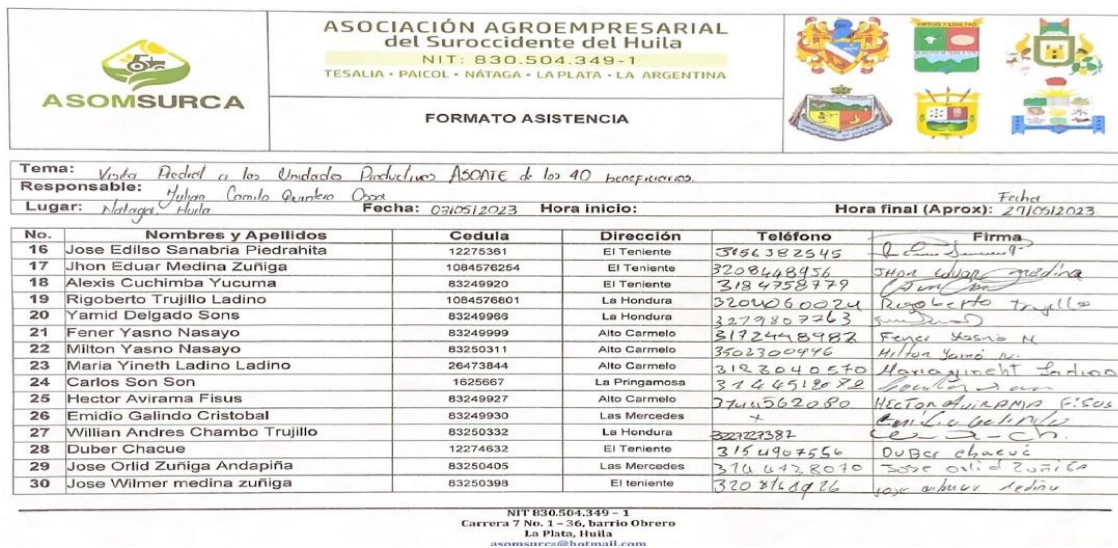 ASOMSURCA
ASOCIACIÓN AGROEMPRESARIAL
del Suroccidente del Huila
NIT: 830.504.349-1
TESALIA • PAICOL • NÁTAGA • LA PLATA • LA ARGENTINA
FORMATO ASISTENCIA
Tema: Visita Predial a las Unidades Productivas ASOATE de los 40 beneficiarios.
Responsable: Julian Camilo Quintero
Lugar: Nataga, Huila Fecha: 03/05/2023 Hora inicio: Hora final (Aprox): Fecha 27/05/2023
No. Nombres y Apellidos Cedula Dirección Teléfono Firma
16 Jose Edilso Sanabria Piedrahita 12275361 El Teniente 3156382545
17 Jhon Eduar Medina Zuñiga 1084576254 El Teniente 3208448956 JHon eduar medina
18 Alexis Cuchimba Yucuma 83249920 El Teniente 3184758779
19 Rigoberto Trujillo Ladino 1084576801 La Hondura 3204060024 Rigoberto Trujillo
20 Yamid Delgado Sons 83249966 La Hondura 3279807763
21 Fener Yasno Nasayo 83249999 Alto Carmelo 3172448982 Fener Yasno N
22 Milton Yasno Nasayo 83250311 Alto Carmelo 3502300446 Milton Yasnó N.
23 Maria Yineth Ladino Ladino 26473844 Alto Carmelo 3123040570 Mariayineht Ladino
24 Carlos Son Son 1625667 La Pringamosa
25 Hector Avirama Fisus 83249927 Alto Carmelo 3144562080 HECTOR AVIRAMA FISUS
26 Emidio Galindo Cristobal 83249930 Las Mercedes Emidio Galindo
27 Willian Andres Chambo Trujillo 83250332 La Hondura
28 Duber Chacue 12274632 El Teniente 3154907556 DUBer chacué
29 Jose Orlid Zuñiga Andapiña 83250405 Las Mercedes Jose orlid Zuñiga
30 Jose Wilmer medina zuñiga 83250398 El teniente
NIT 830.504.349 – 1
Carrera 7 No. 1 – 36, barrio Obrero
La Plata, Huila
asomsurca@hotmail.com